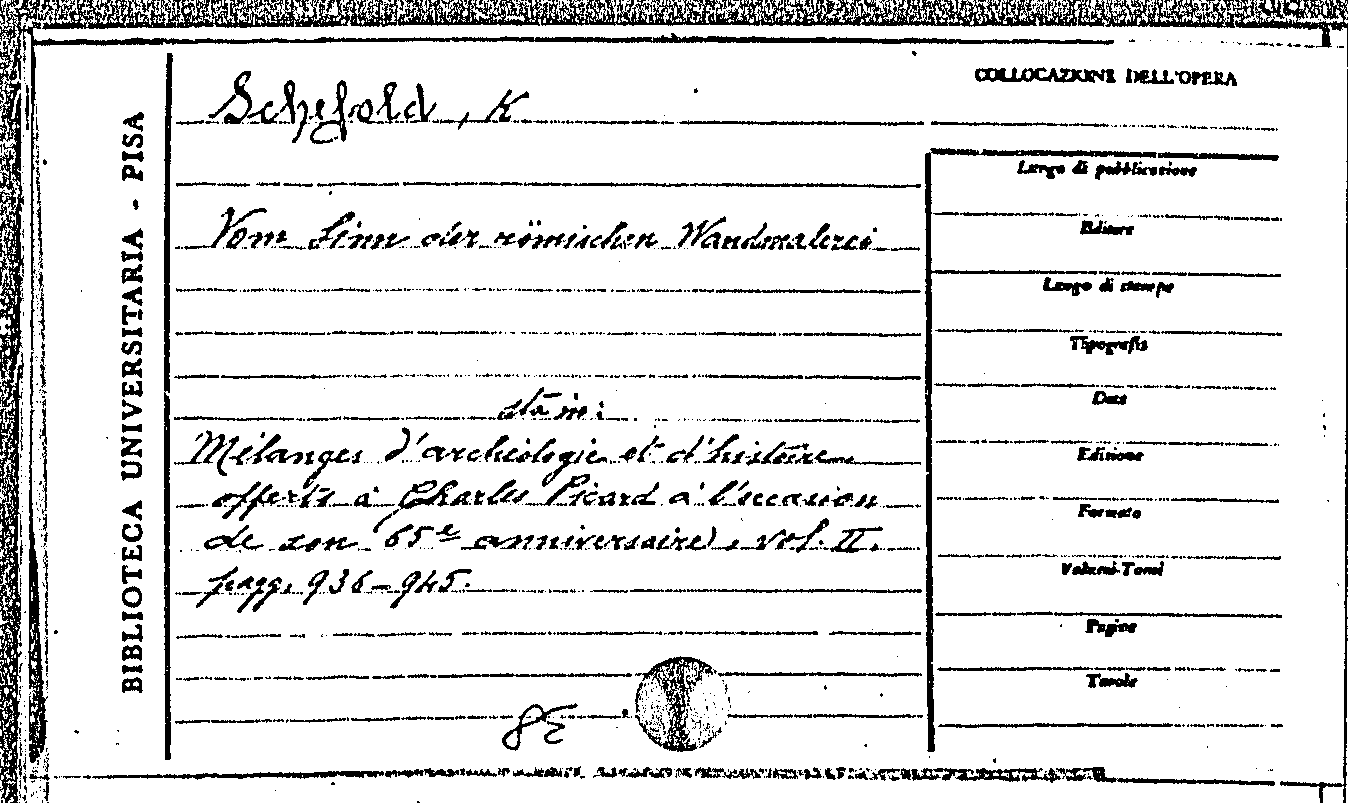 BIBLIOTECA UNIVERSITARIA - PISA
Schefold, K
Vom Sinn der römischen Wandmalerei
sta in:
Mélanges d'archéologie et d'histoire
offerts à Charles Picard à l'occasion
de son 65e anniversaire, vol. II.
pagg. 936-945.
COLLOCAZIONE DELL'OPERA
Luogo di pubblicazione
Editore
Luogo di stampa
Tipografia
Data
Edizione
Formato
Volumi-Tomi
Pagine
Tavole